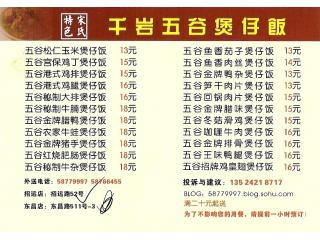 宋氏特色
千岩五谷煲仔飯
五谷松仁玉米煲仔饭 13元
五谷宫保鸡丁煲仔饭 15元
五谷港式鸡排煲仔饭 15元
五谷港式鸡腿煲仔饭 16元
五谷秘制大排煲仔饭 16元
五谷秘制牛腩煲仔饭 18元
五谷金牌腊鸭煲仔饭 18元
五谷农家牛蛙煲仔饭 18元
五谷金牌猪手煲仔饭 18元
五谷红烧肥肠煲仔饭 18元
五谷秘制牛杂煲仔饭 18元
五谷鱼香茄子煲仔饭 13元
五谷鱼香肉丝煲仔饭 14元
五谷金牌鸭杂煲仔饭 15元
五谷笋干肉片煲仔饭 15元
五谷回锅肉片煲仔饭 15元
五谷金牌鸭腿煲仔饭 15元
五谷冬菇滑鸡煲仔饭 15元
五谷咖喱牛肉煲仔饭 16元
五谷金牌排骨煲仔饭 16元
五谷王味鸭腿煲仔饭 16元
五谷招牌鸡皇翅煲仔饭 16元
外送电话: 58779997 58786455
招远店: 招远路52号
东昌店: 东昌路511号-3
投诉与建议: 135 2421 8717
BLOG: 58779997.blog.sohu.com
满二十元起送
为了不影响您的用餐，请提前一小时预订!